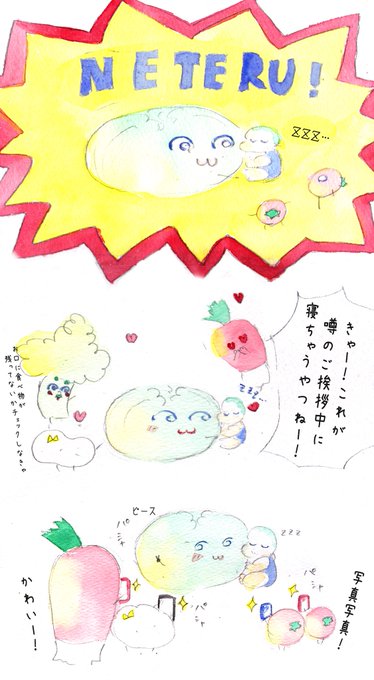 NETERU!
ZZZ…
きゃー!これが
噂のご挨拶中に
寝ちゃうやつねー!
ZZZ…
お口に食べ物が
残ってないかチェックしなきゃ
ピース
パシャ
ZZZ
パシャ
パシャ
写真写真!
かわいー!